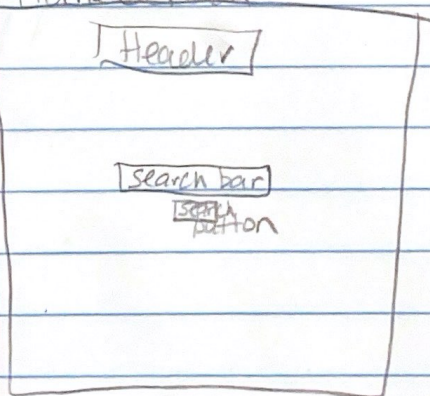 Header
search bar
search
button